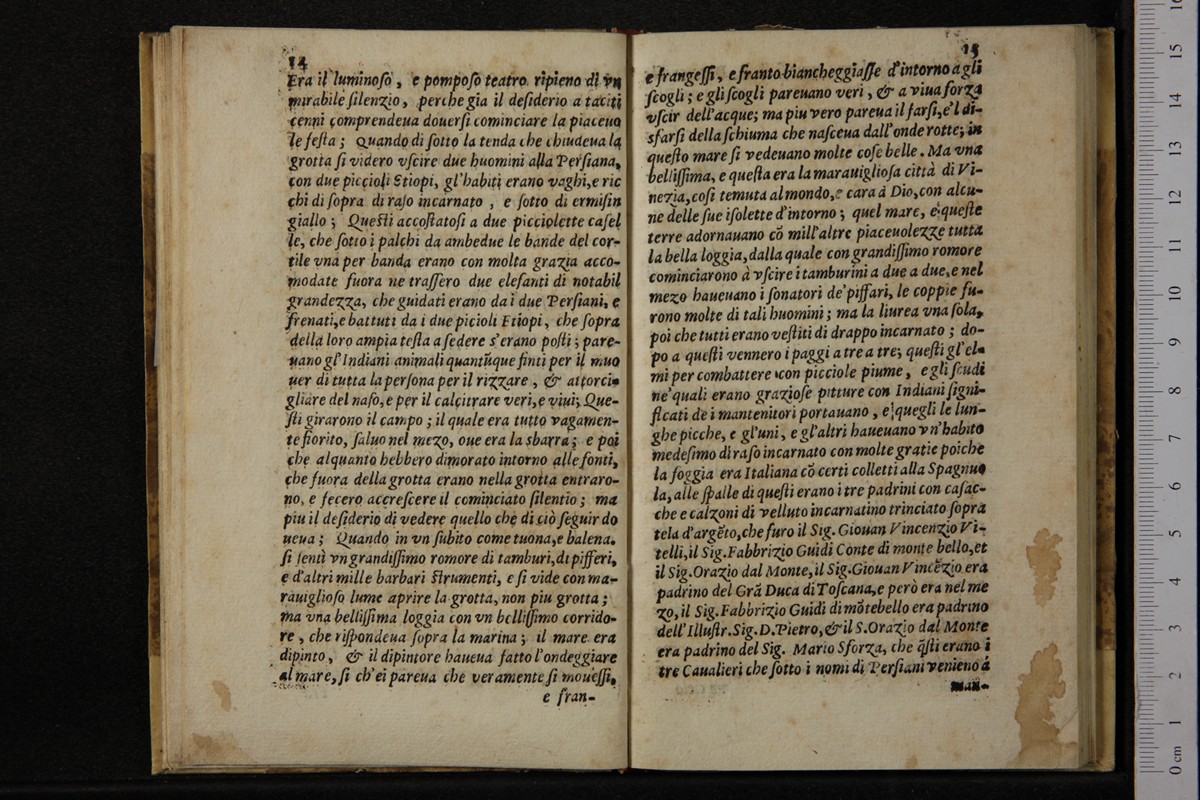 14
Era il luminoſo, e pompoſo teatro ripieno di vn
mirabile ſilenzio, perche gia il deſiderio a taciti
cenni comprendeua douerſi cominciare la piaceuo
le feſta; Quando di ſotto la tenda che chiudeua la
grotta ſi videro vſcire due huomini alla Perſiana,
con due piccioli Etiopi, gl'habiti erano vaghi, e ric
chi di ſopra di raſo incarnato, e ſotto di ermiſin
giallo; Queſti accoſtatoſi a due picciolette caſel
le, che ſotto i palchi da ambedue le bande del cor-
tile vna per banda erano con molta grazia acco-
modate fuora ne traſſero due elefanti di notabil
grandezza, che guidati erano da i due Perſiani, e
frenati, e battuti da i due picioli Etiopi, che ſopra
della loro ampia teſta a ſedere s'erano poſti; pare-
uano gl'Indiani animali quantũque finti per il muo
uer di tutta la perſona per il rizzare, & attorci-
gliare del naſo, e per il calcitrare veri, e viui; Que-
ſti girarono il campo; il quale era tutto vagamen-
te fiorito, ſaluo nel mezo, oue era la sbarra; e poi
che alquanto hebbero dimorato intorno alle fonti,
che fuora della grotta erano nella grotta entraro-
no, e fecero accreſcere il cominciato ſilentio; ma
piu il deſiderio di vedere quello che di ciò ſeguir do
ueua; Quando in vn ſubito come tuona, e balena.
ſi ſenti vn grandiſſimo romore di tamburi, di pifferi,
e d'altri mille barbari ſtrumenti, e ſi vide con ma-
rauiglioſo lume aprire la grotta, non piu grotta;
ma vna belliſſima loggia con vn belliſſimo corrido-
re, che riſpondeua ſopra la marina; il mare era
dipinto, & il dipintore haueua fatto l'ondeggiare
al mare, ſi ch'ei pareua che veramente ſi moueſſi,
e fran-
15
e frangeſſi, e franto biancheggiaſſe d'intorno a gli
ſcogli; e gli ſcogli pareuano veri, & a viua forza
vſcir dell'acque; ma piu vero pareua il farſi, e'l di-
sfarſi della ſchiuma che naſceua dall'onde rotte; in
queſto mare ſi vedeuano molte coſe belle. Ma vna
belliſſima, e queſta era la marauiglioſa città di Vi-
nezia, coſi temuta al mondo, e cara à Dio, con alcu-
ne delle ſue iſolette d'intorno; quel mare, e queſte
terre adornauano cõ mill'altre piaceuolezze tutta
la bella loggia, dalla quale con grandiſſimo romore
cominciarono à vſcire i tamburini a due a due, e nel
mezo haueuano i ſonatori de'piffari, le coppie fu-
rono molte di tali huomini; ma la liurea vna ſola,
poi che tutti erano veſtiti di drappo incarnato; do-
po a queſti vennero i paggi a tre a tre; queſti gl'el-
mi per combattere con picciole piume, e gli ſcudi
ne'quali erano grazioſe pitture con Indiani ſigni-
ficati de i mantenitori portauano, e quegli le lun-
ghe picche, e gl'uni, e gl'altri haueuano vn'habito
medeſimo di raſo incarnato con molte gratie poiche
la foggia era Italiana cõ certi colletti alla Spagnuo
la, alle ſpalle di queſti erano i tre padrini con caſac-
che e calzoni di velluto incarnatino trinciato ſopra
tela d'argẽto, che furo il Sig. Giouan Vincenzio Vi-
telli, il Sig. Fabbrizio Guidi Conte di monte bello, et
il Sig. Orazio dal Monte, il Sig. Giouan Vincẽzio era
padrino del Grã Duca di Toſcana, e però era nel me
zo, il Sig. Fabbrizio Guidi di mõtebello era padrino
dell'Illuſtr. Sig. D. Pietro, & il S. Orazio dal Monte
era padrino del Sig. Mario Sforza, che q̃ſti erano i
tre Caualieri che ſotto i nomi di Perſiani venieno à
man-
0 cm 1 2 3 4 5 6 7 8 9 10 11 12 13 14 15 16